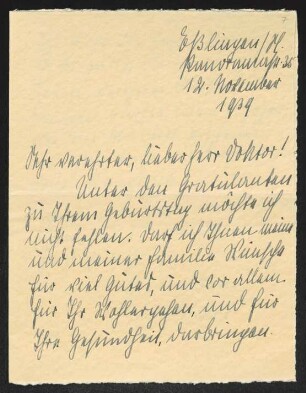 Eßlingen/N.
Panoramastr. 25
12. November
1939
Sehr verehrter, lieber Herr Doktor!
Unter den Gratulanten
zu Ihrem Geburtstag möchte ich
nicht fehlen. Darf ich Ihnen meine
und meiner Familie Wünsche
für viel Gutes, und vor allem
für Ihr Wohlergehen, und für
Ihre Gesundheit, darbringen.